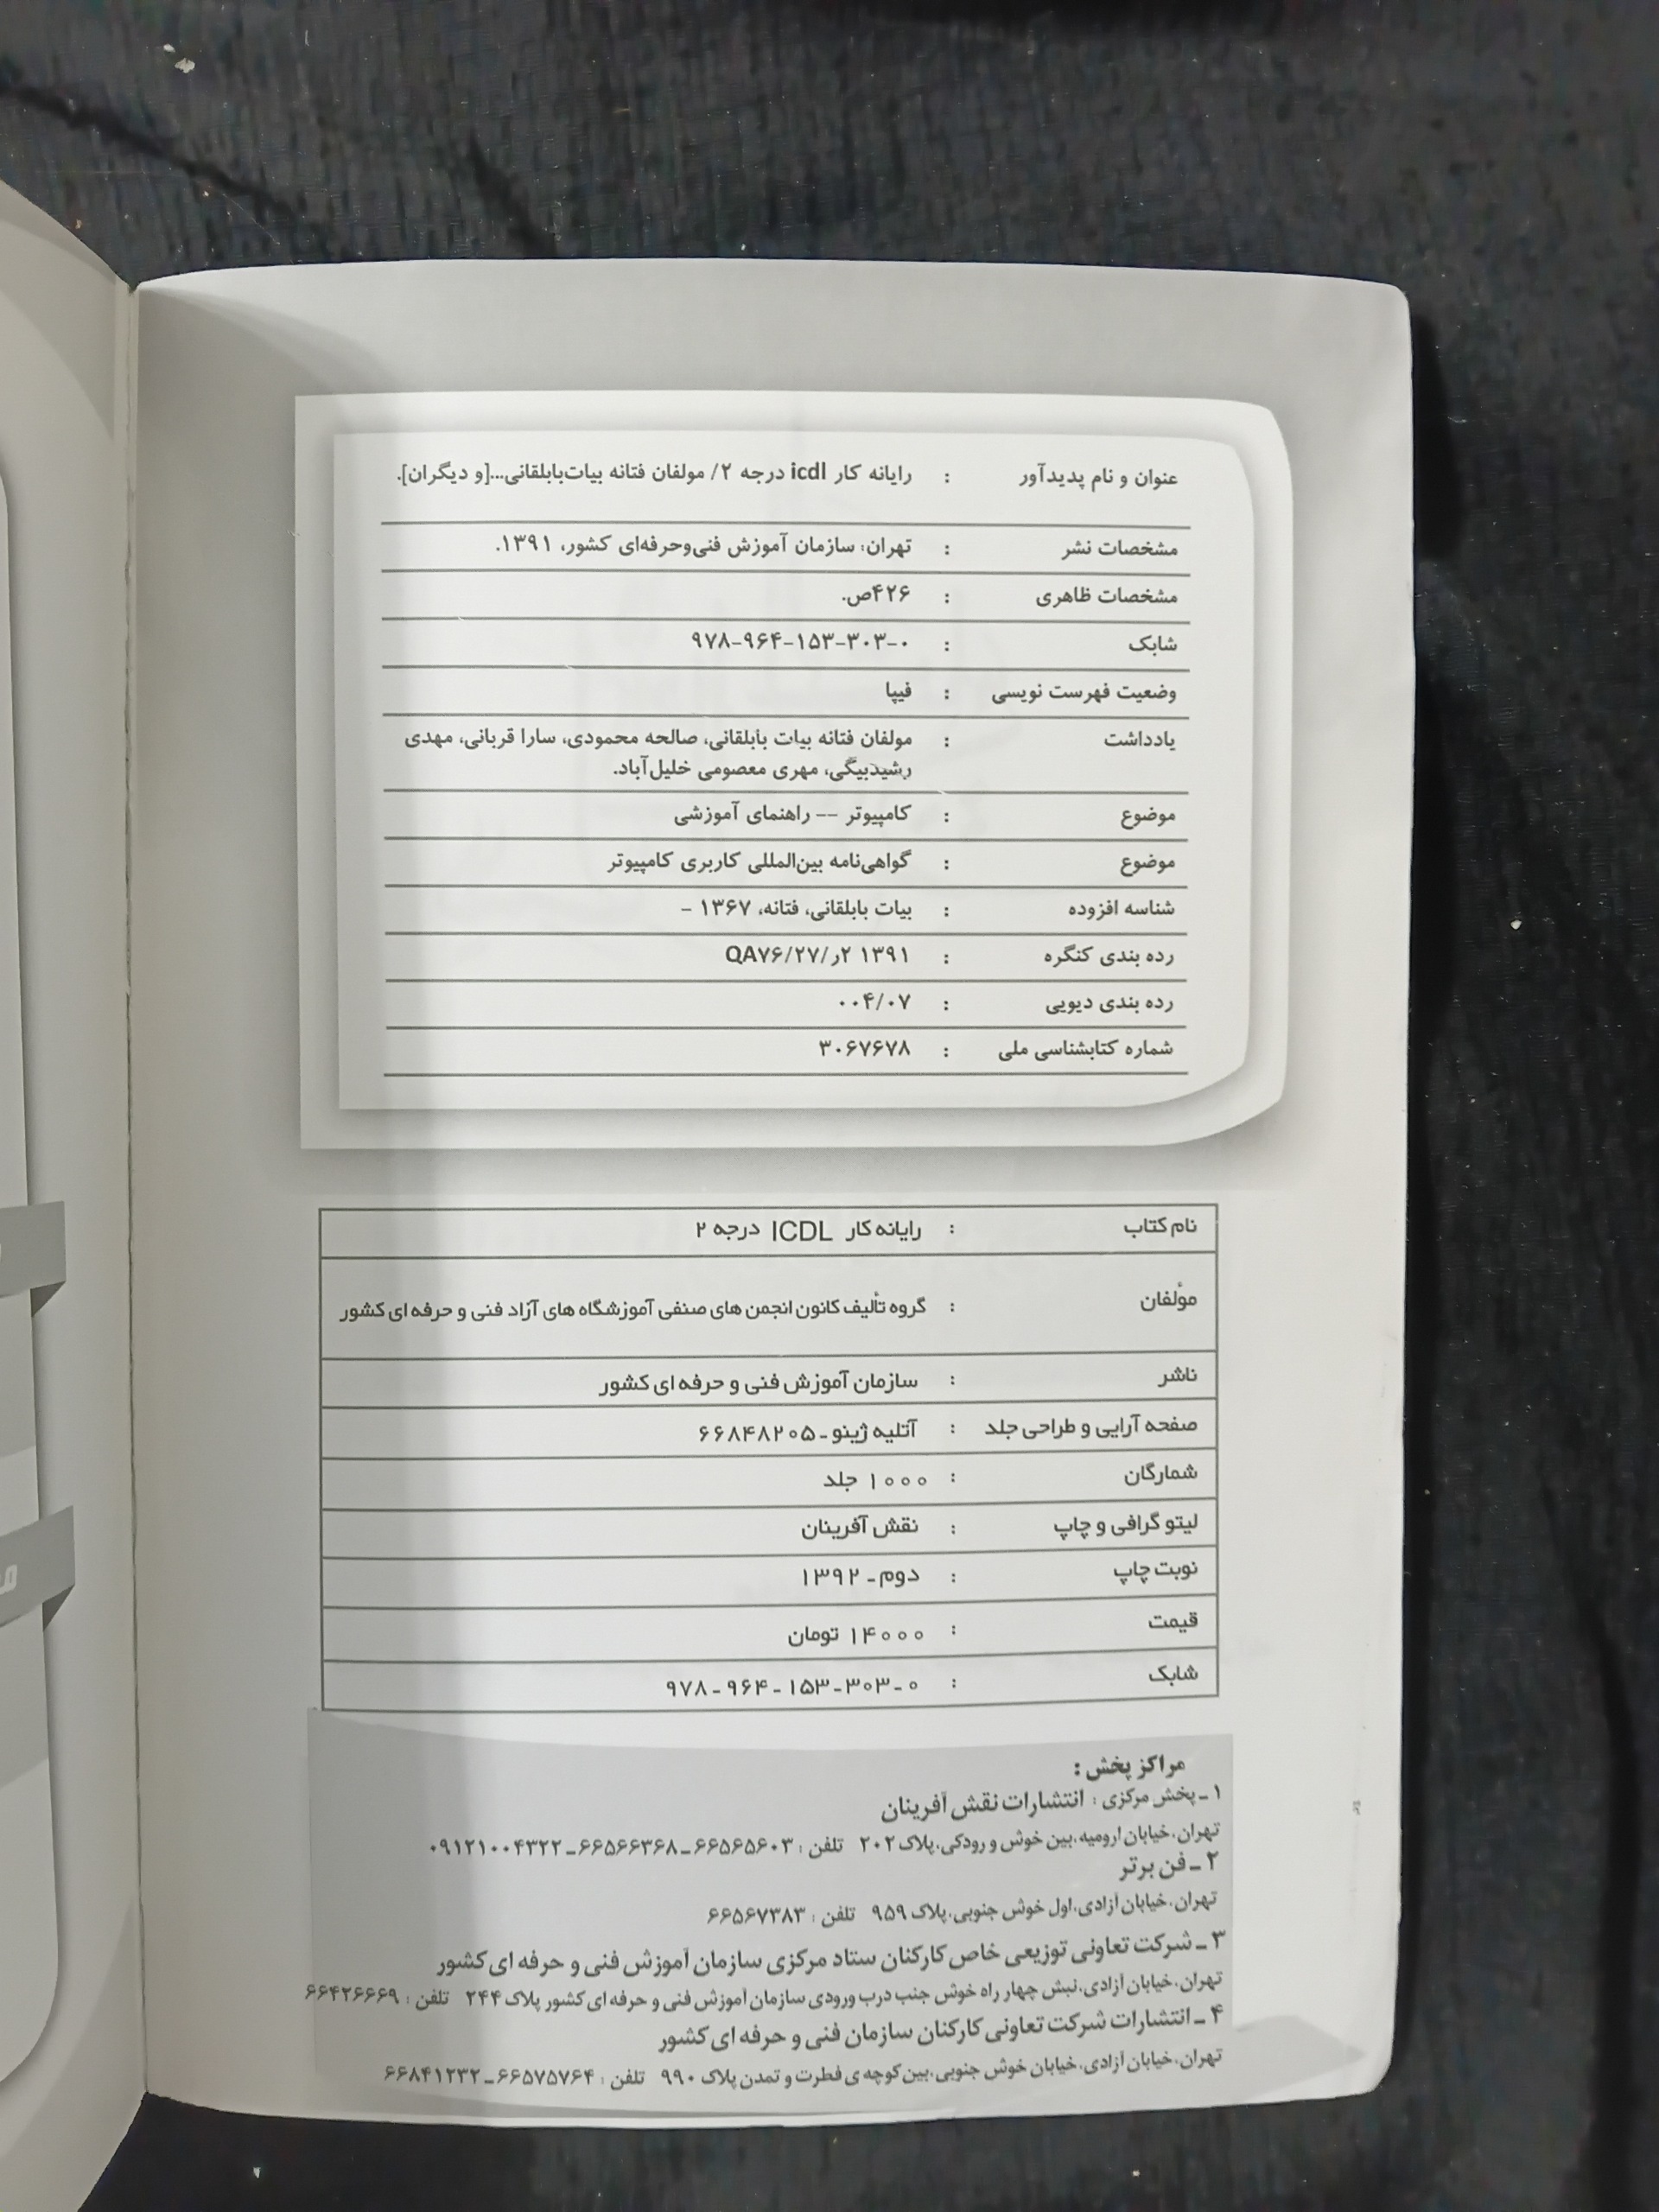 عنوان و نام پدیدآور : رایانه کار icdl درجه ۲/ مولفان فتانه بیات‌بابلقانی...[و دیگران].
مشخصات نشر : تهران: سازمان آموزش فنی‌وحرفه‌ای کشور، ۱۳۹۱.
مشخصات ظاهری : ۴۲۶ص.
شابک : ۹۷۸-۹۶۴-۱۵۳-۳۰۳-۰
وضعیت فهرست نویسی : فیپا
یادداشت : مولفان فتانه بیات بابلقانی، صالحه محمودی، سارا قربانی، مهدی
رشیدبیگی، مهری معصومی خلیل‌آباد.
موضوع : کامپیوتر -- راهنمای آموزشی
موضوع : گواهی‌نامه بین‌المللی کاربری کامپیوتر
شناسه افزوده : بیات بابلقانی، فتانه، ۱۳۶۷ -
رده بندی کنگره : ۱۳۹۱ ۲ر/QA۷۶/۲۷
رده بندی دیویی : ۰۰۴/۰۷
شماره کتابشناسی ملی : ۳۰۶۷۶۷۸
نام کتاب : رایانه کار ICDL درجه ۲
مؤلفان : گروه تألیف کانون انجمن های صنفی آموزشگاه های آزاد فنی و حرفه ای کشور
ناشر : سازمان آموزش فنی و حرفه ای کشور
صفحه آرایی و طراحی جلد : آتلیه ژینو ـ ۶۶۸۴۸۲۰۵
شمارگان : ۱۰۰۰ جلد
لیتو گرافی و چاپ : نقش آفرینان
نوبت چاپ : دوم ـ ۱۳۹۲
قیمت : ۱۴۰۰۰ تومان
شابک : ۹۷۸ - ۹۶۴ - ۱۵۳ - ۳۰۳ - ۰
مراکز پخش :
۱ ـ پخش مرکزی : انتشارات نقش آفرینان
تهران،خیابان ارومیه،بین خوش و رودکی،پلاک ۲۰۲ تلفن : ۶۶۵۶۵۶۰۳ ـ ۶۶۵۶۶۳۶۸ ـ ۰۹۱۲۱۰۰۴۳۲۲
۲ ـ فن برتر
تهران،خیابان آزادی،اول خوش جنوبی،پلاک ۹۵۹ تلفن : ۶۶۵۶۷۳۸۳
۳ ـ شرکت تعاونی توزیعی خاص کارکنان ستاد مرکزی سازمان آموزش فنی و حرفه ای کشور
تهران،خیابان آزادی،نبش چهار راه خوش جنب درب ورودی سازمان آموزش فنی و حرفه ای کشور پلاک ۲۴۴ تلفن : ۶۶۴۲۶۶۶۹
۴ ـ انتشارات شرکت تعاونی کارکنان سازمان فنی و حرفه ای کشور
تهران،خیابان آزادی،خیابان خوش جنوبی،بین کوچه ی فطرت و تمدن پلاک ۹۹۰ تلفن : ۶۶۵۷۵۷۶۴ ـ ۶۶۸۴۱۲۳۲